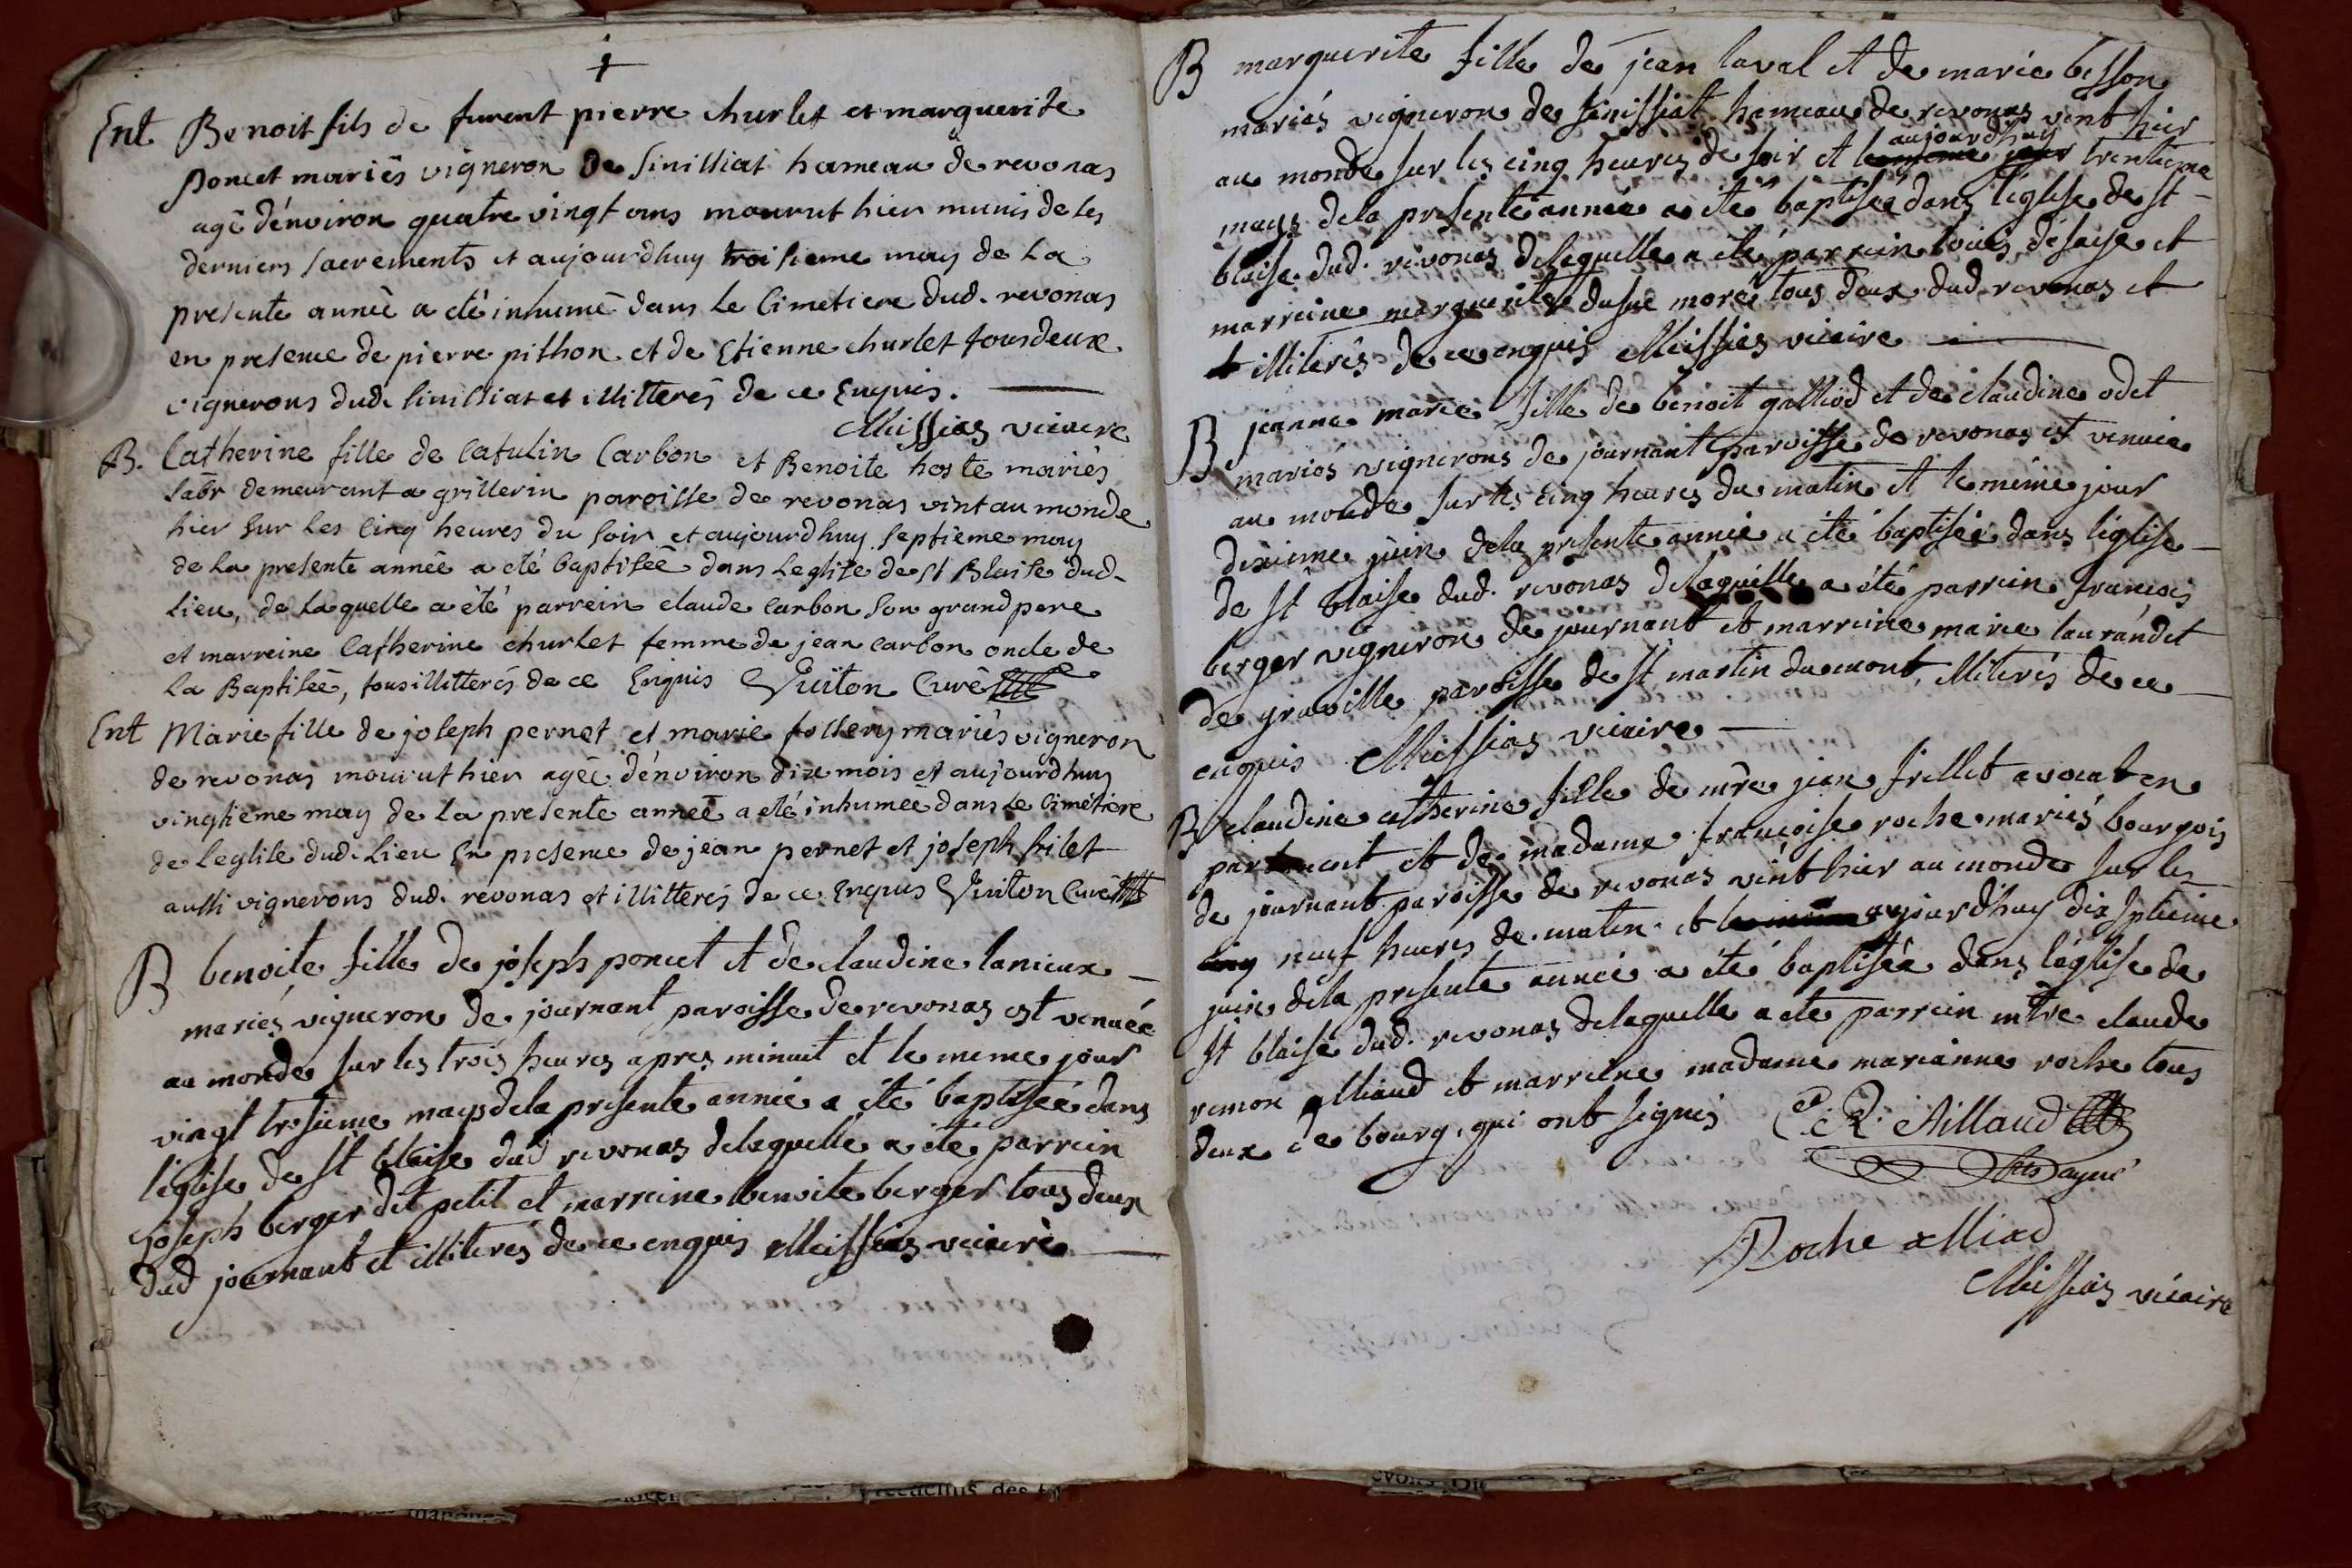 Ent Benoit fils de furent pierre churlet et marguerite
poncet mariés vigneron de Sinissiat hameau de revonas
agé d'énviron quatre vingt ans mourut hier munis de ses
derniers sacrements et aujourdhuy troisieme may de La
presente année a été inhumé dans Le Cimetiere dud. revonas
en presence de pierre pithon et de Etienne churlet tous deux
vignerons dud. Sinissiat et illitterés de ce Enquis.
Meissias vicaire
B. Catherine fille de Catulin Carbon et Benoite hoste mariés
Labr demeurant a grillerin paroisse de revonas vint au monde
hier sur Les Cinq heures du soir et aujourdhuy septieme may
de La presente année a été baptisée dans Leglise de St Blaise dud.
Lieu, de Laquelle a été parrein claude Carbon son grand pere
et marreine Catherine churlet femme de jean carbon oncle de
La Baptisée, tous illitterés de ce Enquis Vuiton Curé
Ent Marie fille de joseph pernet et marie follery mariés vigneron
de revonas mourut hier agée d'énviron dix mois et aujourdhuy
vingtieme may de La presente année a été inhumée dans Le Cimétiere
de Leglise dud. Lieu En presence de jean pernet et joseph filet
aussi vignerons dud. revonas et illitterés de ce Enquis Vuiton Curé
B benoite fille de joseph poncet et de claudine lanieux
mariés vigneron de journant paroisse de revonas est venuée
au monde sur les trois heures apres minuit et le meme jour
vingt trosieme mays dela presente année a été baptisée dans
l'église de St blaise dud revonas delaquelle a été parrein
joseph berger dit petit et marreine benoite berger tous deux
dud journant et illiterés de ce enquis Meissias vicaire
B marguerite fille de jean laval et de marie besson
mariés vigneron de sinissiat hameau de revonas vint hier
aujourdhuy
au monde sur les cinq heures de soir et le meme jour trentieme
mays dela presente année a été baptisée dans l'église de st
blaise dud. revonas delaquelle a été parrein louis désaise et
marreine marguerite dusue moré tous deux dud revonas et
et illiterés de ce enquis Meissias vicaire
B jeanne marie fille de benoit galliod et de claudine odet
mariés vignerons de journant paroisse de revonas est venuée
au monde sur les cinq heures du matin et le méme jour
dixieme juin dela presente année a été baptisée dans l'église
de st blaise dud. revonas delaquelle a été parrein francois
berger vigneron de journant et marreine marie laurandet
de graville paroisse de st martin du mont, illiterés de ce
enquis Meissias vicaire
B claudine catherine fille de mre jean frillet avocat en
parlement et de madame francoise roche mariés bourgois
de journant paroisse de revonas vint hier au monde sur les
cinq neuf heures de matin et le meme aujourd'huy dix septieme
juin dela presente année a été baptisée dans l'église de
st blaise dud. revonas delaquelle a ete parrein mtre claude
remon alliaud et marreine madame marianne roche tous
deux de bourg, qui ont signés C. R. Aillaud
Roche alliad
Meissias vicaire